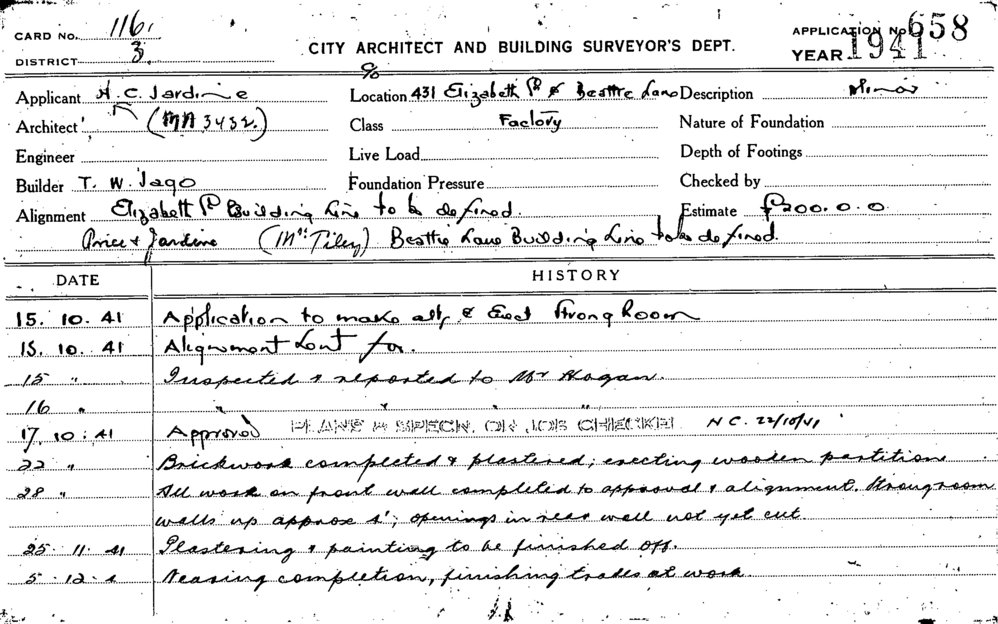 CARD No. 116.
DISTRICT 3.
CITY ARCHITECT AND BUILDING SURVEYOR'S DEPT.
APPLICATION No. 658
YEAR 1941
Applicant H. C. Jardine
c/o
Location 431 Elizabeth St & Beattie Lane
Description Minor
Architect " (MA 3432.)
Class Factory
Nature of Foundation
Engineer
Live Load
Depth of Footings
Builder T. W. Jago
Foundation Pressure
Checked by
Alignment Elizabeth St Building Line to be defined.
Estimate £200.0.0
Price & Jardine (Mr Tiley) Beattie Lane Building Line to be defined.
DATE HISTORY
15. 10. 41 Application to make alts & Erect Strong Room
15. 10. 41 Alignment Sent for.
15 " Inspected & reported to Mr Hogan.
16 " " " "
17. 10. 41 Approved PLANS & SPECN. ON JOB CHECKED N C. 22/10/41
22 " Brickwork completed & plastered; erecting wooden partition
28 " All work on front wall completed to approval & alignment. Strongroom
walls up approx 4'; openings in rear wall not yet cut.
25. 11. 41 Plastering & painting to be finished off.
5. 12. 4 Nearing completion, finishing trades at work.